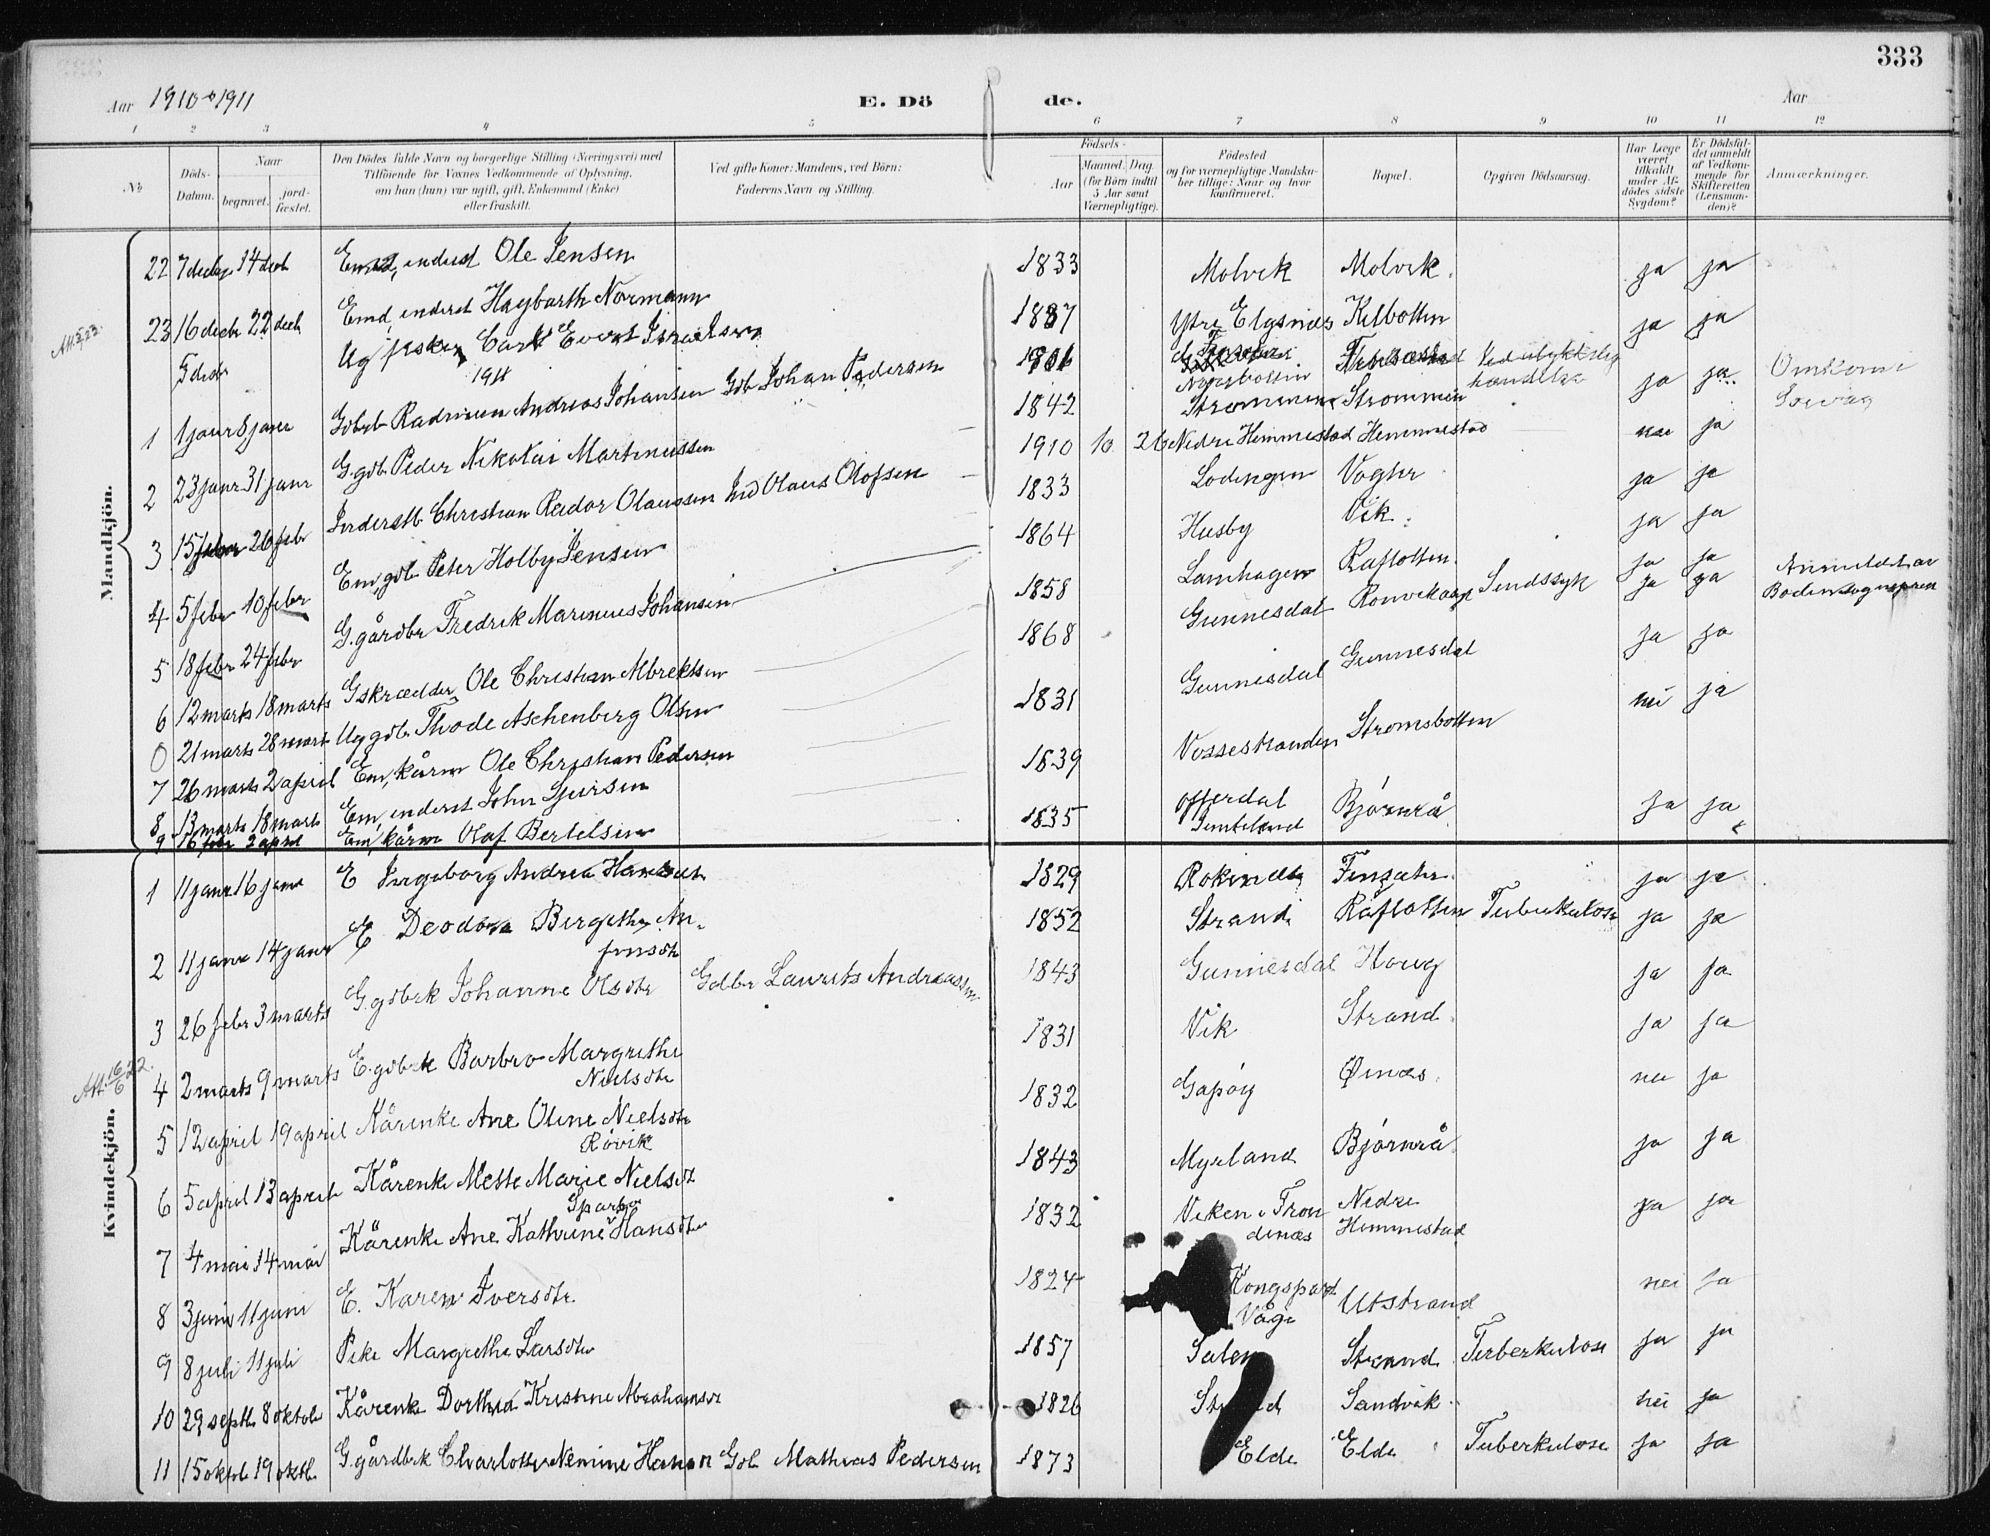 333
Aar 1910 & 1911 E. Dö de. Aar
1 2 3 4 5 6 7 8 9 10 11 12
No Döds-Datum. Naar begravet. jord-fæstet. Den Dödes fulde Navn og borgerlige Stilling (Næringsvei) med Tilföiende for Voxnes Vedkommende af Oplysning, om han (hun) var ugift, gift, Enkemand (Enke) eller fraskilt. Ved gifte Koner: Mandens, ved Börn: Faderens Navn og Stilling. Födsels- Aar Maaned. Dag. (for Börn indtil 5 Aar samt Værnepligtige). Födested og for værnepligtige Mandskaber tillige: Naar og hvor konfirmeret. Bopæl. Opgiven Dödsaarsag. Har Læge været tilkaldt under Afdödes sidste Sygdom? Er Dödsfaldet anmeldt af Vedkommende for Skifteretten (Lensmanden)? Anmærkninger.
Mandkjön.
22 7 decbr 14 decb Emd, inderst Ole Jensen 1833 Molvik Molvik ja ja
23 16 decbr 22 decb Emd, inderst Hagbarth Normann 1837 Ytre Elgsnæs Kilbotten ja ja
5 decbr Ug fisker Carl Evert Israelsen Ved ulykkelig hændelse Omkom
1911
1 1 janr 8 janr Gdbr Andreas Johansen Gdb Johan Pedersen 1842 Strommen Strommen ja ja
1910 10 26 Nedre Hemmestad Hemmestad nei ja
2 23 janr 31 janr G.gdb Peder Nikolai Martinussen 1833 Lodingen ja ja
3 15 26 febr Christian Olaussen Ind Olaus Olofsen 1864 Husby Vik ja ja
4 5 febr 10 febr Em, gdb Peter Holby Jensen 1858 ja ja
Gunnesdal Sindssyk ja ja Anmeldt av
5 18 febr 24 febr G.gårdbr Fredrik Marinius Johansen 1868 Gunnesdal Gunnesdal ja ja
6 12 marts 18 marts G skrædder Ole Christian Albrektsen 1831 nei ja
0 21 marts 28 mart Ug gdb. Thode Aschenberg Olsen Vossestranden Stromsbotten
7 26 marts 2 april Em, kårm Ole Christian Pedersen 1839
8 13 marts 18 marts Em, inderst John Sjursen 1835 Offerdal Jemteland Bjørnrå ja ja
9 16 febr 2 april Em, kårm Olaf Bertelsen
Kvindekjön.
1 11 janr 16 janr E Ingeborg Andrea Hansdtr 1829 Finsæter ja ja
2 11 janr 14 janr E Deodora Bergithe An- 1852 Strand Tuberkulose ja ja
finsdtr
3 26 febr 3 marts G.gdbrk Johanne Olsdtr Gdbr Laurits Andreassen 1843 Gunnesdal Houg ja ja
1831 Vik Strand ja ja
4 2 marts 9 marts E. gdbrk Barbro Margrethe 1832 Gapøy Øinæs nei ja
Nielsdtr
5 12 april 19 april Kårenke Ane Oline Nielsdtr 1843 Myrland Bjørnrå ja ja
Røvik
6 5 april 13 april Kårenke Mette Marie Nielsdt 1832 Viken i Tron Nedre ja ja
denæs Hemmestad
7 4 mai 14 mai Kårenke Ane Kathrine Hansdtr 1824 Utstrand nei ja
Våge
8 3 juni 11 juni E. Karen Iversdtr
9 8 juli 11 juli Pike Margrethe Larsdtr 1857 Strand Tuberkulose ja ja
10 29 septb 8 oktob Kårenke Dorthea Kristine Abrahamsdt 1826 Sandvik nei ja
11 15 oktob 19 oktb G.gårdbrk Charlotte Nemine Hansen Gdb Mathias Pedersen 1873 Elde Elde Tuberkulose ja ja